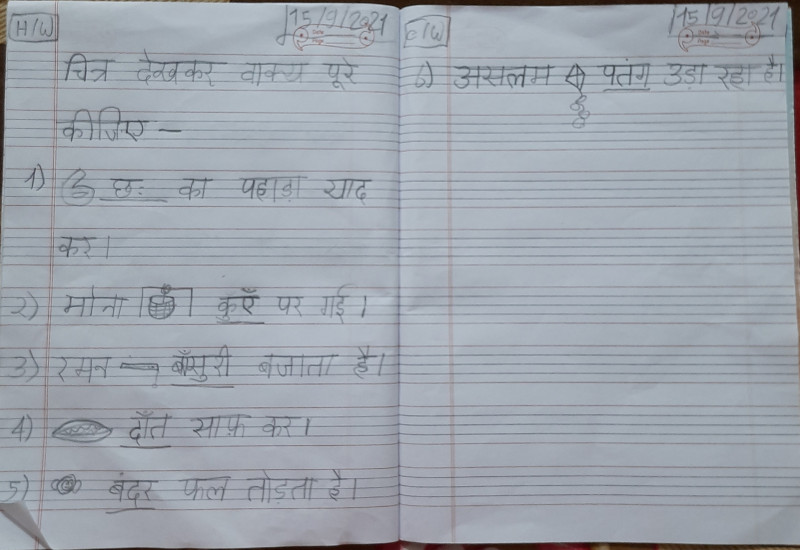 H/W
15/9/2021
चित्र देखकर वाक्य पूरे
कीजिए –
1) छः का पहाड़ा याद
कर।
2) मोना कुएँ पर गई।
3) रमन बाँसुरी बजाता है।
4) दाँत साफ़ कर।
5) बंदर फल तोड़ता है।
C/W
15/9/2021
6) असलम पतंग उड़ा रहा है।